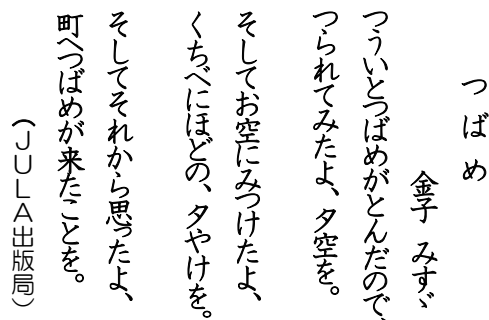 つばめ
金子 みすゞ
つういとつばめがとんだので、
つられてみたよ、夕空を。
そしてお空にみつけたよ、
くちべにほどの、夕やけを。
そしてそれから思ったよ、
町へつばめが来たことを。
（ＪＵＬＡ出版局）